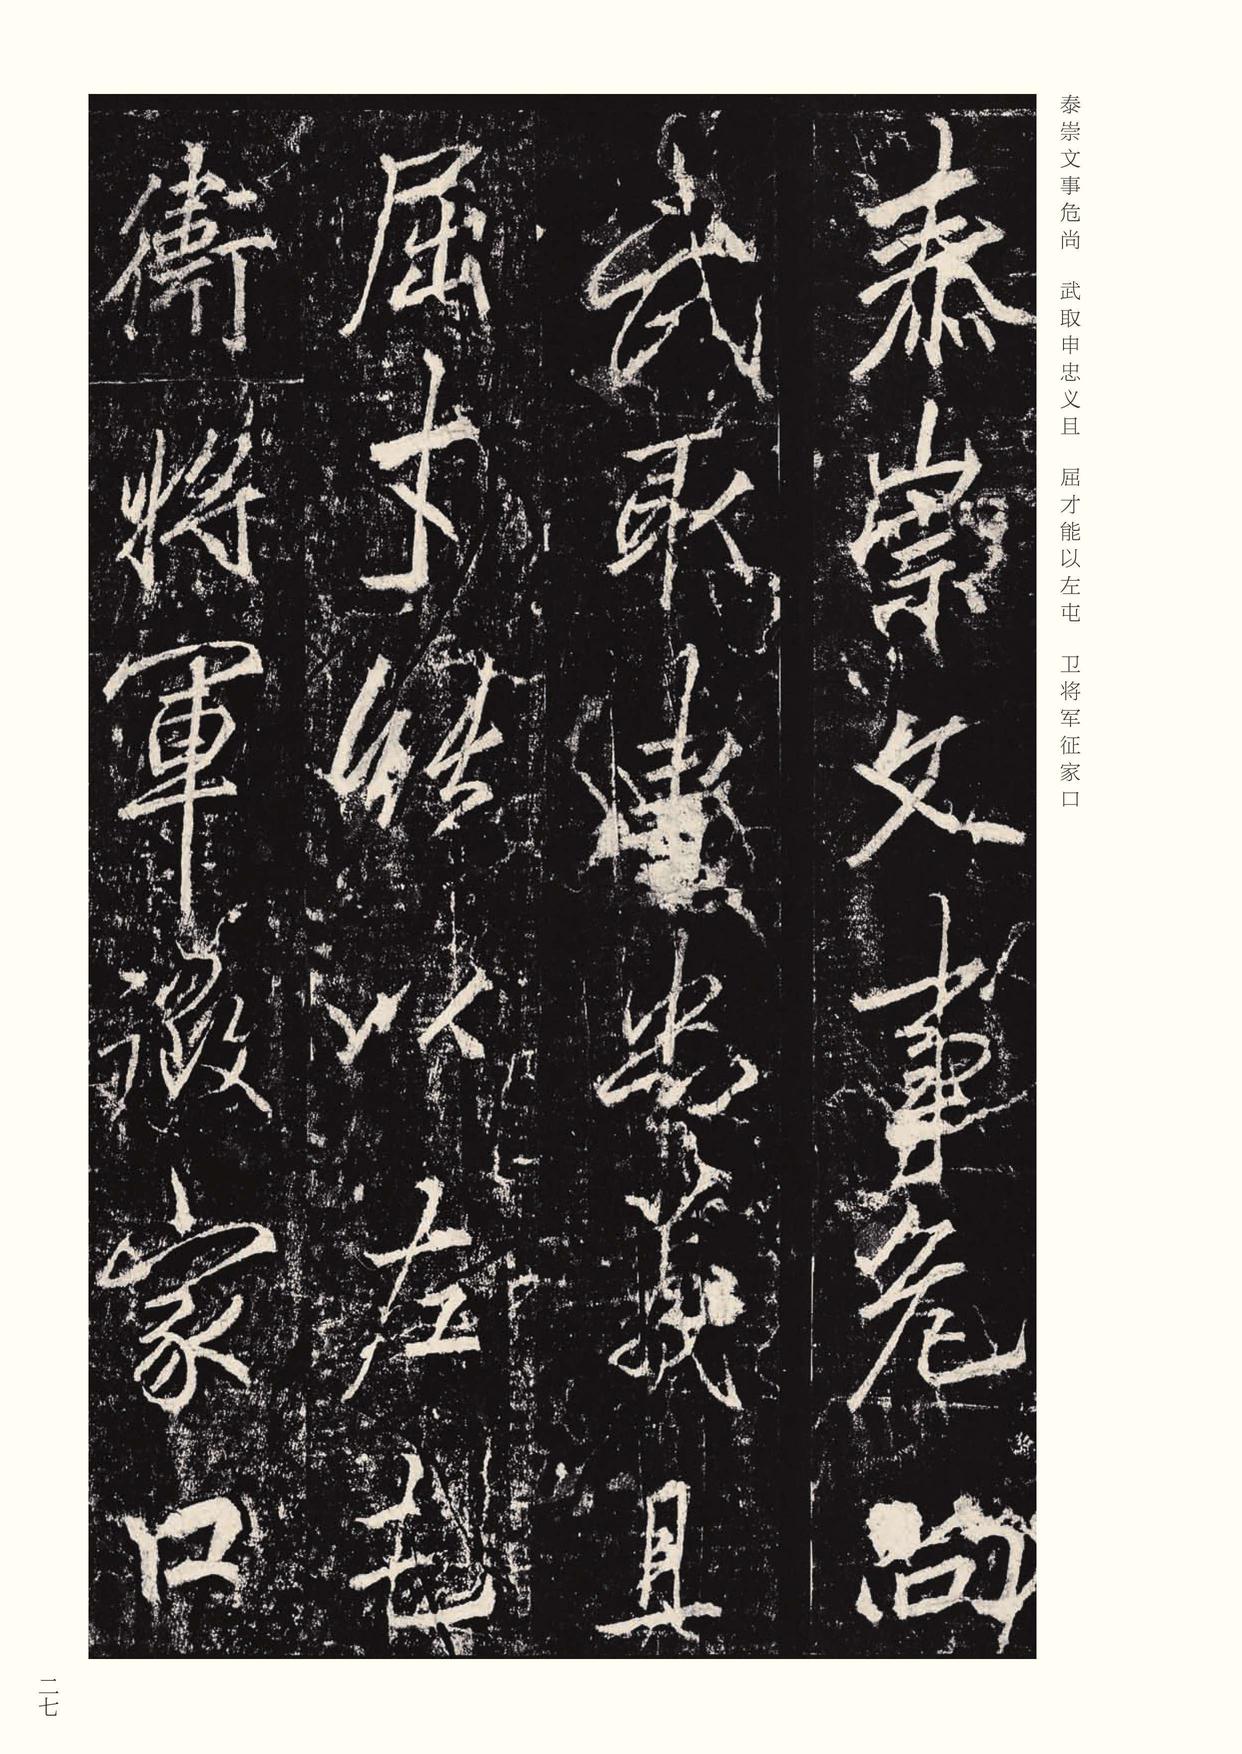 泰崇文事危尚　武取申忠义且　屈才能以左屯　卫将军征家口
泰崇文事危尚
武取忠義且
屈才能以左屯
衛將軍徵家口
二七